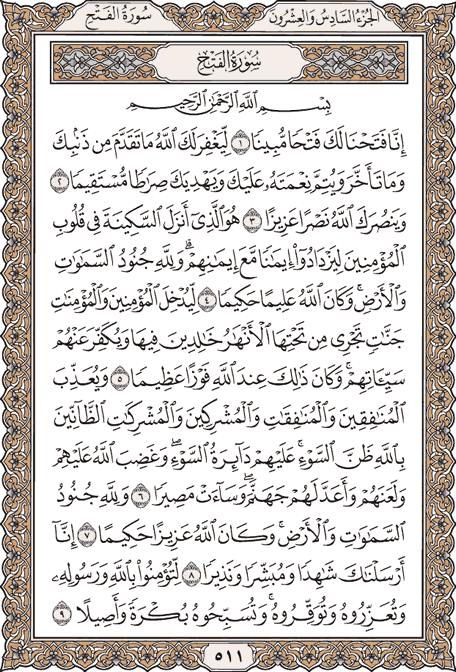 سُورَةُ الفَتۡحِ
الجُزءُ السَّادِسُ وَالعِشۡرُونَ
سُورَةُ الفَتۡحِ
بِسۡمِ ٱللَّهِ ٱلرَّحۡمَٰنِ ٱلرَّحِيمِ
إِنَّا فَتَحۡنَا لَكَ فَتۡحٗا مُّبِينٗا ١ لِّيَغۡفِرَ لَكَ ٱللَّهُ مَا تَقَدَّمَ مِن ذَنۢبِكَ
وَمَا تَأَخَّرَ وَيُتِمَّ نِعۡمَتَهُۥ عَلَيۡكَ وَيَهۡدِيَكَ صِرَٰطٗا مُّسۡتَقِيمٗا ٢
وَيَنصُرَكَ ٱللَّهُ نَصۡرًا عَزِيزًا ٣ هُوَ ٱلَّذِيٓ أَنزَلَ ٱلسَّكِينَةَ فِي قُلُوبِ
ٱلۡمُؤۡمِنِينَ لِيَزۡدَادُوٓاْ إِيمَٰنٗا مَّعَ إِيمَٰنِهِمۡۗ وَلِلَّهِ جُنُودُ ٱلسَّمَٰوَٰتِ
وَٱلۡأَرۡضِۚ وَكَانَ ٱللَّهُ عَلِيمًا حَكِيمٗا ٤ لِّيُدۡخِلَ ٱلۡمُؤۡمِنِينَ وَٱلۡمُؤۡمِنَٰتِ
جَنَّٰتٖ تَجۡرِي مِن تَحۡتِهَا ٱلۡأَنۡهَٰرُ خَٰلِدِينَ فِيهَا وَيُكَفِّرَ عَنۡهُمۡ
سَيِّـَٔاتِهِمۡۚ وَكَانَ ذَٰلِكَ عِندَ ٱللَّهِ فَوۡزًا عَظِيمٗا ٥ وَيُعَذِّبَ
ٱلۡمُنَٰفِقِينَ وَٱلۡمُنَٰفِقَٰتِ وَٱلۡمُشۡرِكِينَ وَٱلۡمُشۡرِكَٰتِ ٱلظَّآنِّينَ
بِٱللَّهِ ظَنَّ ٱلسَّوۡءِۚ عَلَيۡهِمۡ دَآئِرَةُ ٱلسَّوۡءِۖ وَغَضِبَ ٱللَّهُ عَلَيۡهِمۡ
وَلَعَنَهُمۡ وَأَعَدَّ لَهُمۡ جَهَنَّمَۖ وَسَآءَتۡ مَصِيرٗا ٦ وَلِلَّهِ جُنُودُ
ٱلسَّمَٰوَٰتِ وَٱلۡأَرۡضِۚ وَكَانَ ٱللَّهُ عَزِيزًا حَكِيمًا ٧ إِنَّآ
أَرۡسَلۡنَٰكَ شَٰهِدٗا وَمُبَشِّرٗا وَنَذِيرٗا ٨ لِّتُؤۡمِنُواْ بِٱللَّهِ وَرَسُولِهِۦ
وَتُعَزِّرُوهُ وَتُوَقِّرُوهُۚ وَتُسَبِّحُوهُ بُكۡرَةٗ وَأَصِيلًا ٩
٥١١